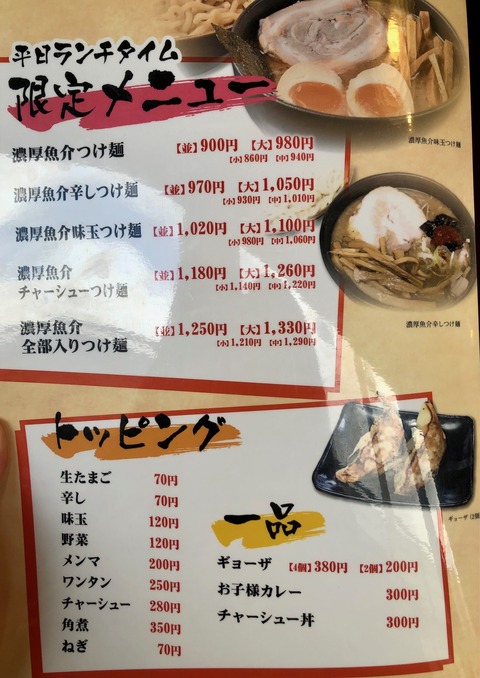 平日ランチタイム
限定メニュー
濃厚魚介つけ麺 【並】900円 【大】980円
【小】860円 【中】940円
濃厚魚介辛しつけ麺 【並】970円 【大】1,050円
【小】930円 【中】1,010円
濃厚魚介味玉つけ麺 【並】1,020円 【大】1,100円
【小】980円 【中】1,060円
濃厚魚介
チャーシューつけ麺 【並】1,180円 【大】1,260円
【小】1,140円 【中】1,220円
濃厚魚介
全部入りつけ麺 【並】1,250円 【大】1,330円
【小】1,210円 【中】1,290円
濃厚魚介味玉つけ麺
濃厚魚介辛しつけ麺
トッピング
生たまご 70円
辛し 70円
味玉 120円
野菜 120円
メンマ 200円
ワンタン 250円
チャーシュー 280円
角煮 350円
ねぎ 70円
一品
ギョーザ 【4個】380円 【2個】200円
お子様カレー 300円
チャーシュー丼 300円
ギョーザ(2個